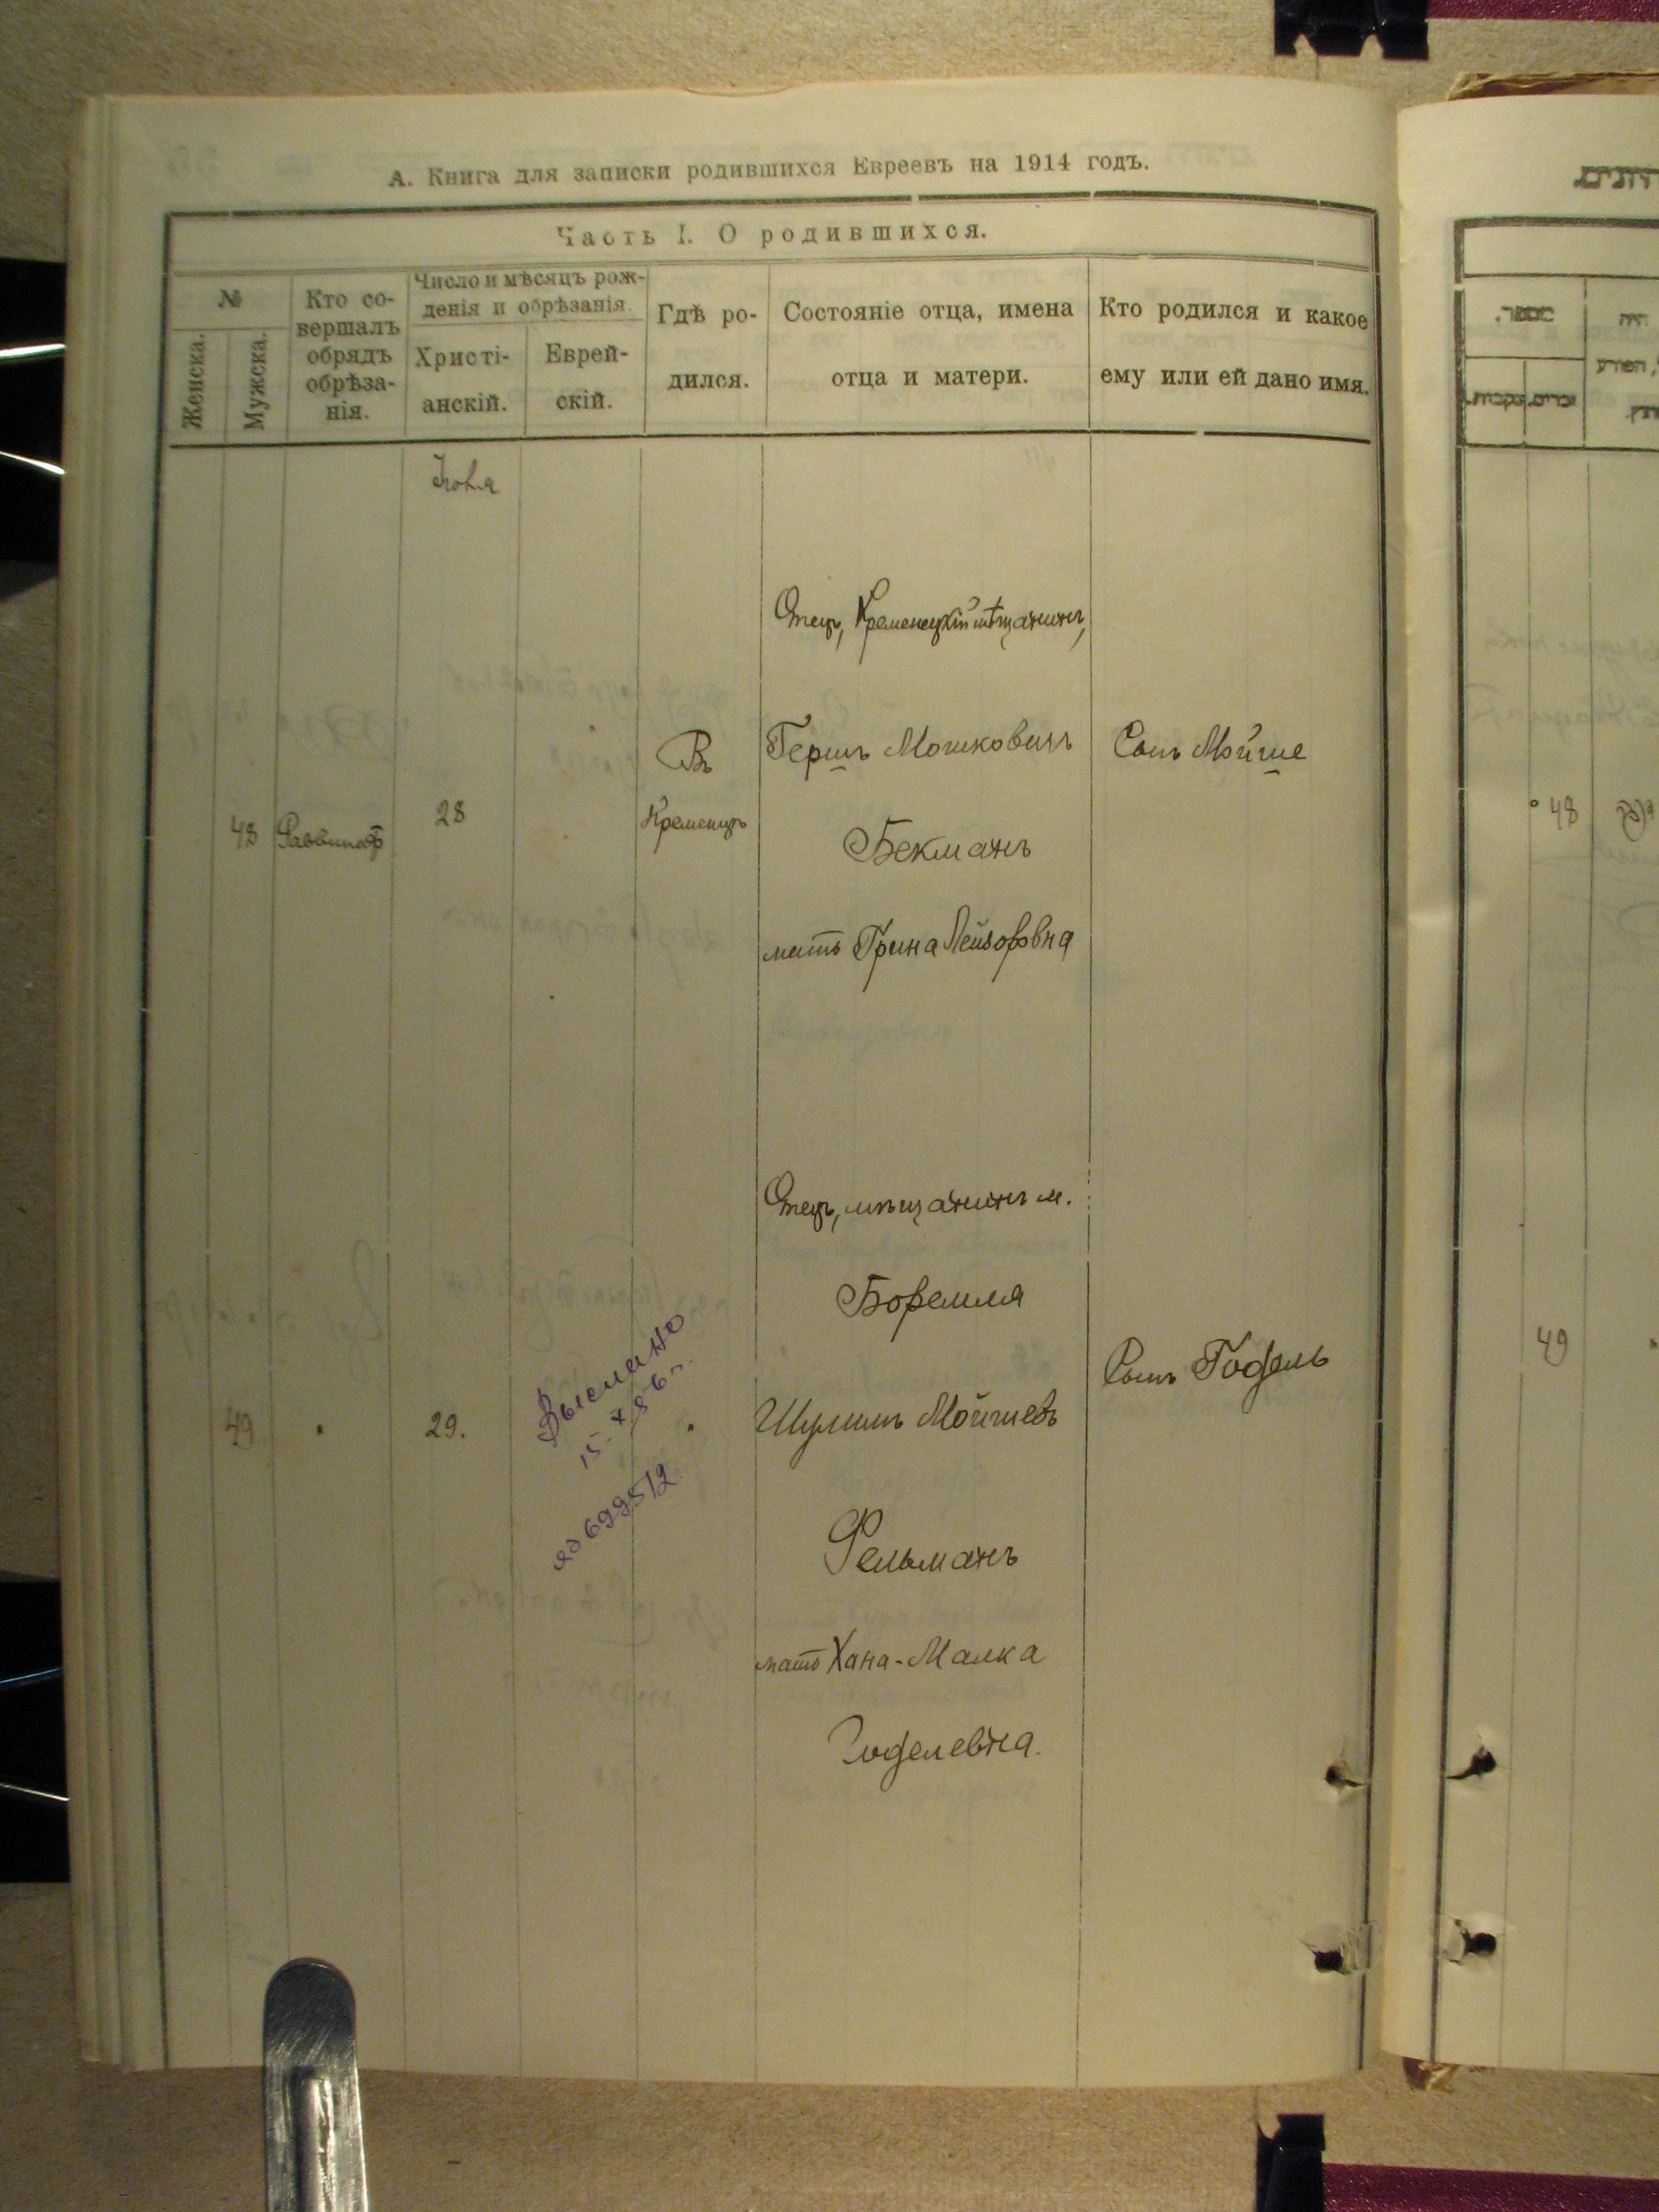 А. Книга для записки родившихся Евреевъ на 1914 годъ.
Часть I. О родившихся.
№
Женска.
Мужска.
Кто со-
вершалъ
обрядъ
обрѣза-
нія.
Число и мѣсяцъ рож-
денія и обрѣзанія.
Христі-
анскій.
Еврей-
скій.
Гдѣ ро-
дился.
Состояніе отца, имена
отца и матери.
Кто родился и какое
ему или ей дано имя.
48
28
Въ
Кременцѣ
Отец, Кременецкій мѣщанинъ,
Гершъ Мошковичъ
Бекманъ
мать Лейзоровна
Сынъ Мойше
49
"
29.
"
Отец, мѣщанинъ м.
Боремля
Шулимъ Мойшев
Фельманъ
мать Хана-Малка
Годелевна.
Сынъ Годель
Выслано
48
49